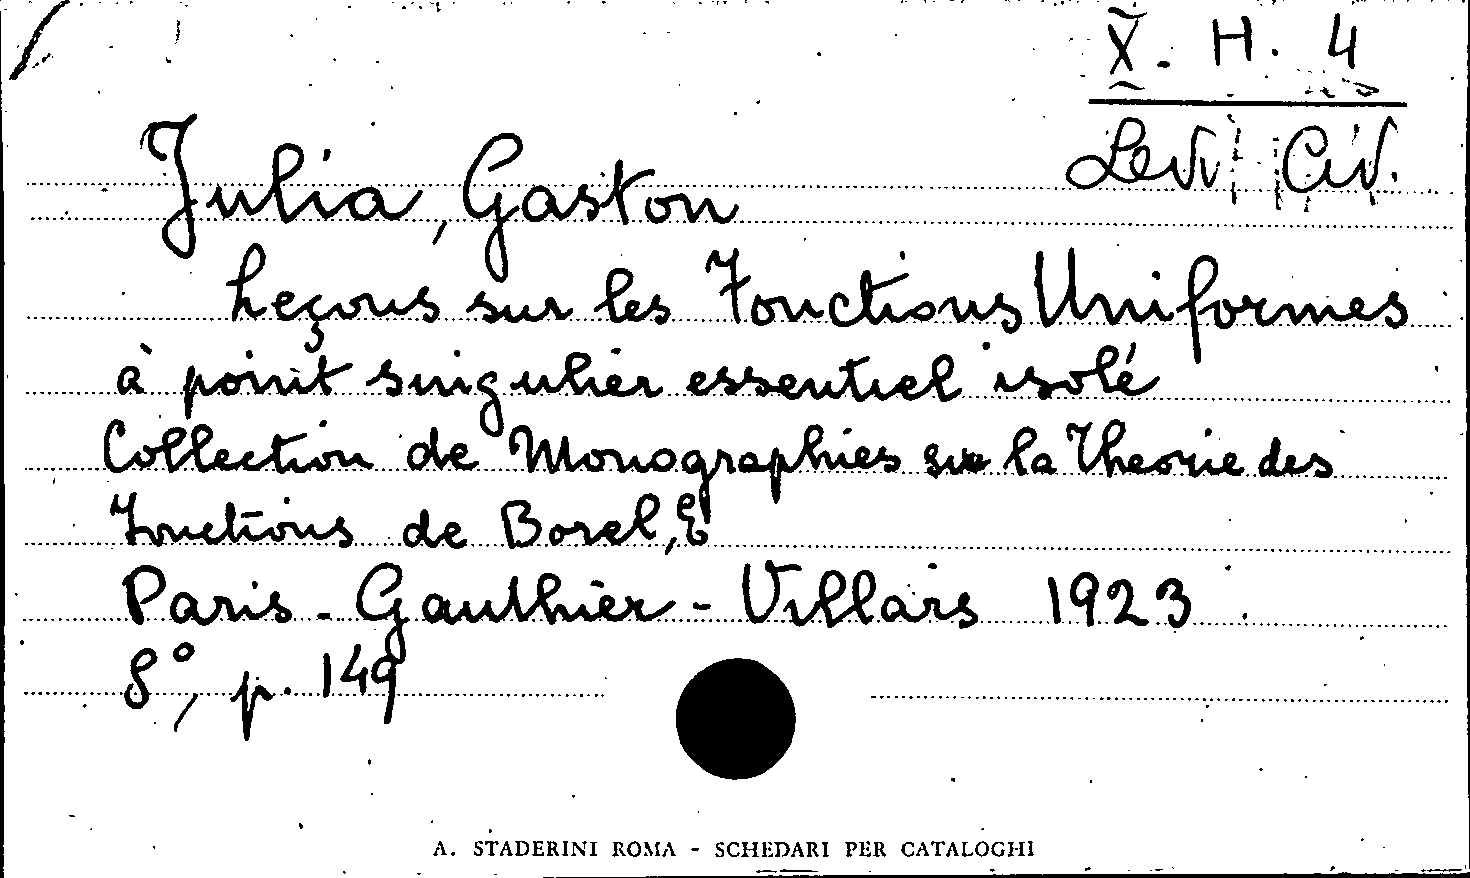 X. H. 4
Levi Civ.
Julia, Gaston
Leçons sur les Fonctions Uniformes
à point singulier essentiel isolé
Collection de Monographies sur la Theorie des
Fonctions de Borel, E
Paris - Gauthier - Villars 1923
8°, p. 149
A. STADERINI ROMA - SCHEDARI PER CATALOGHI